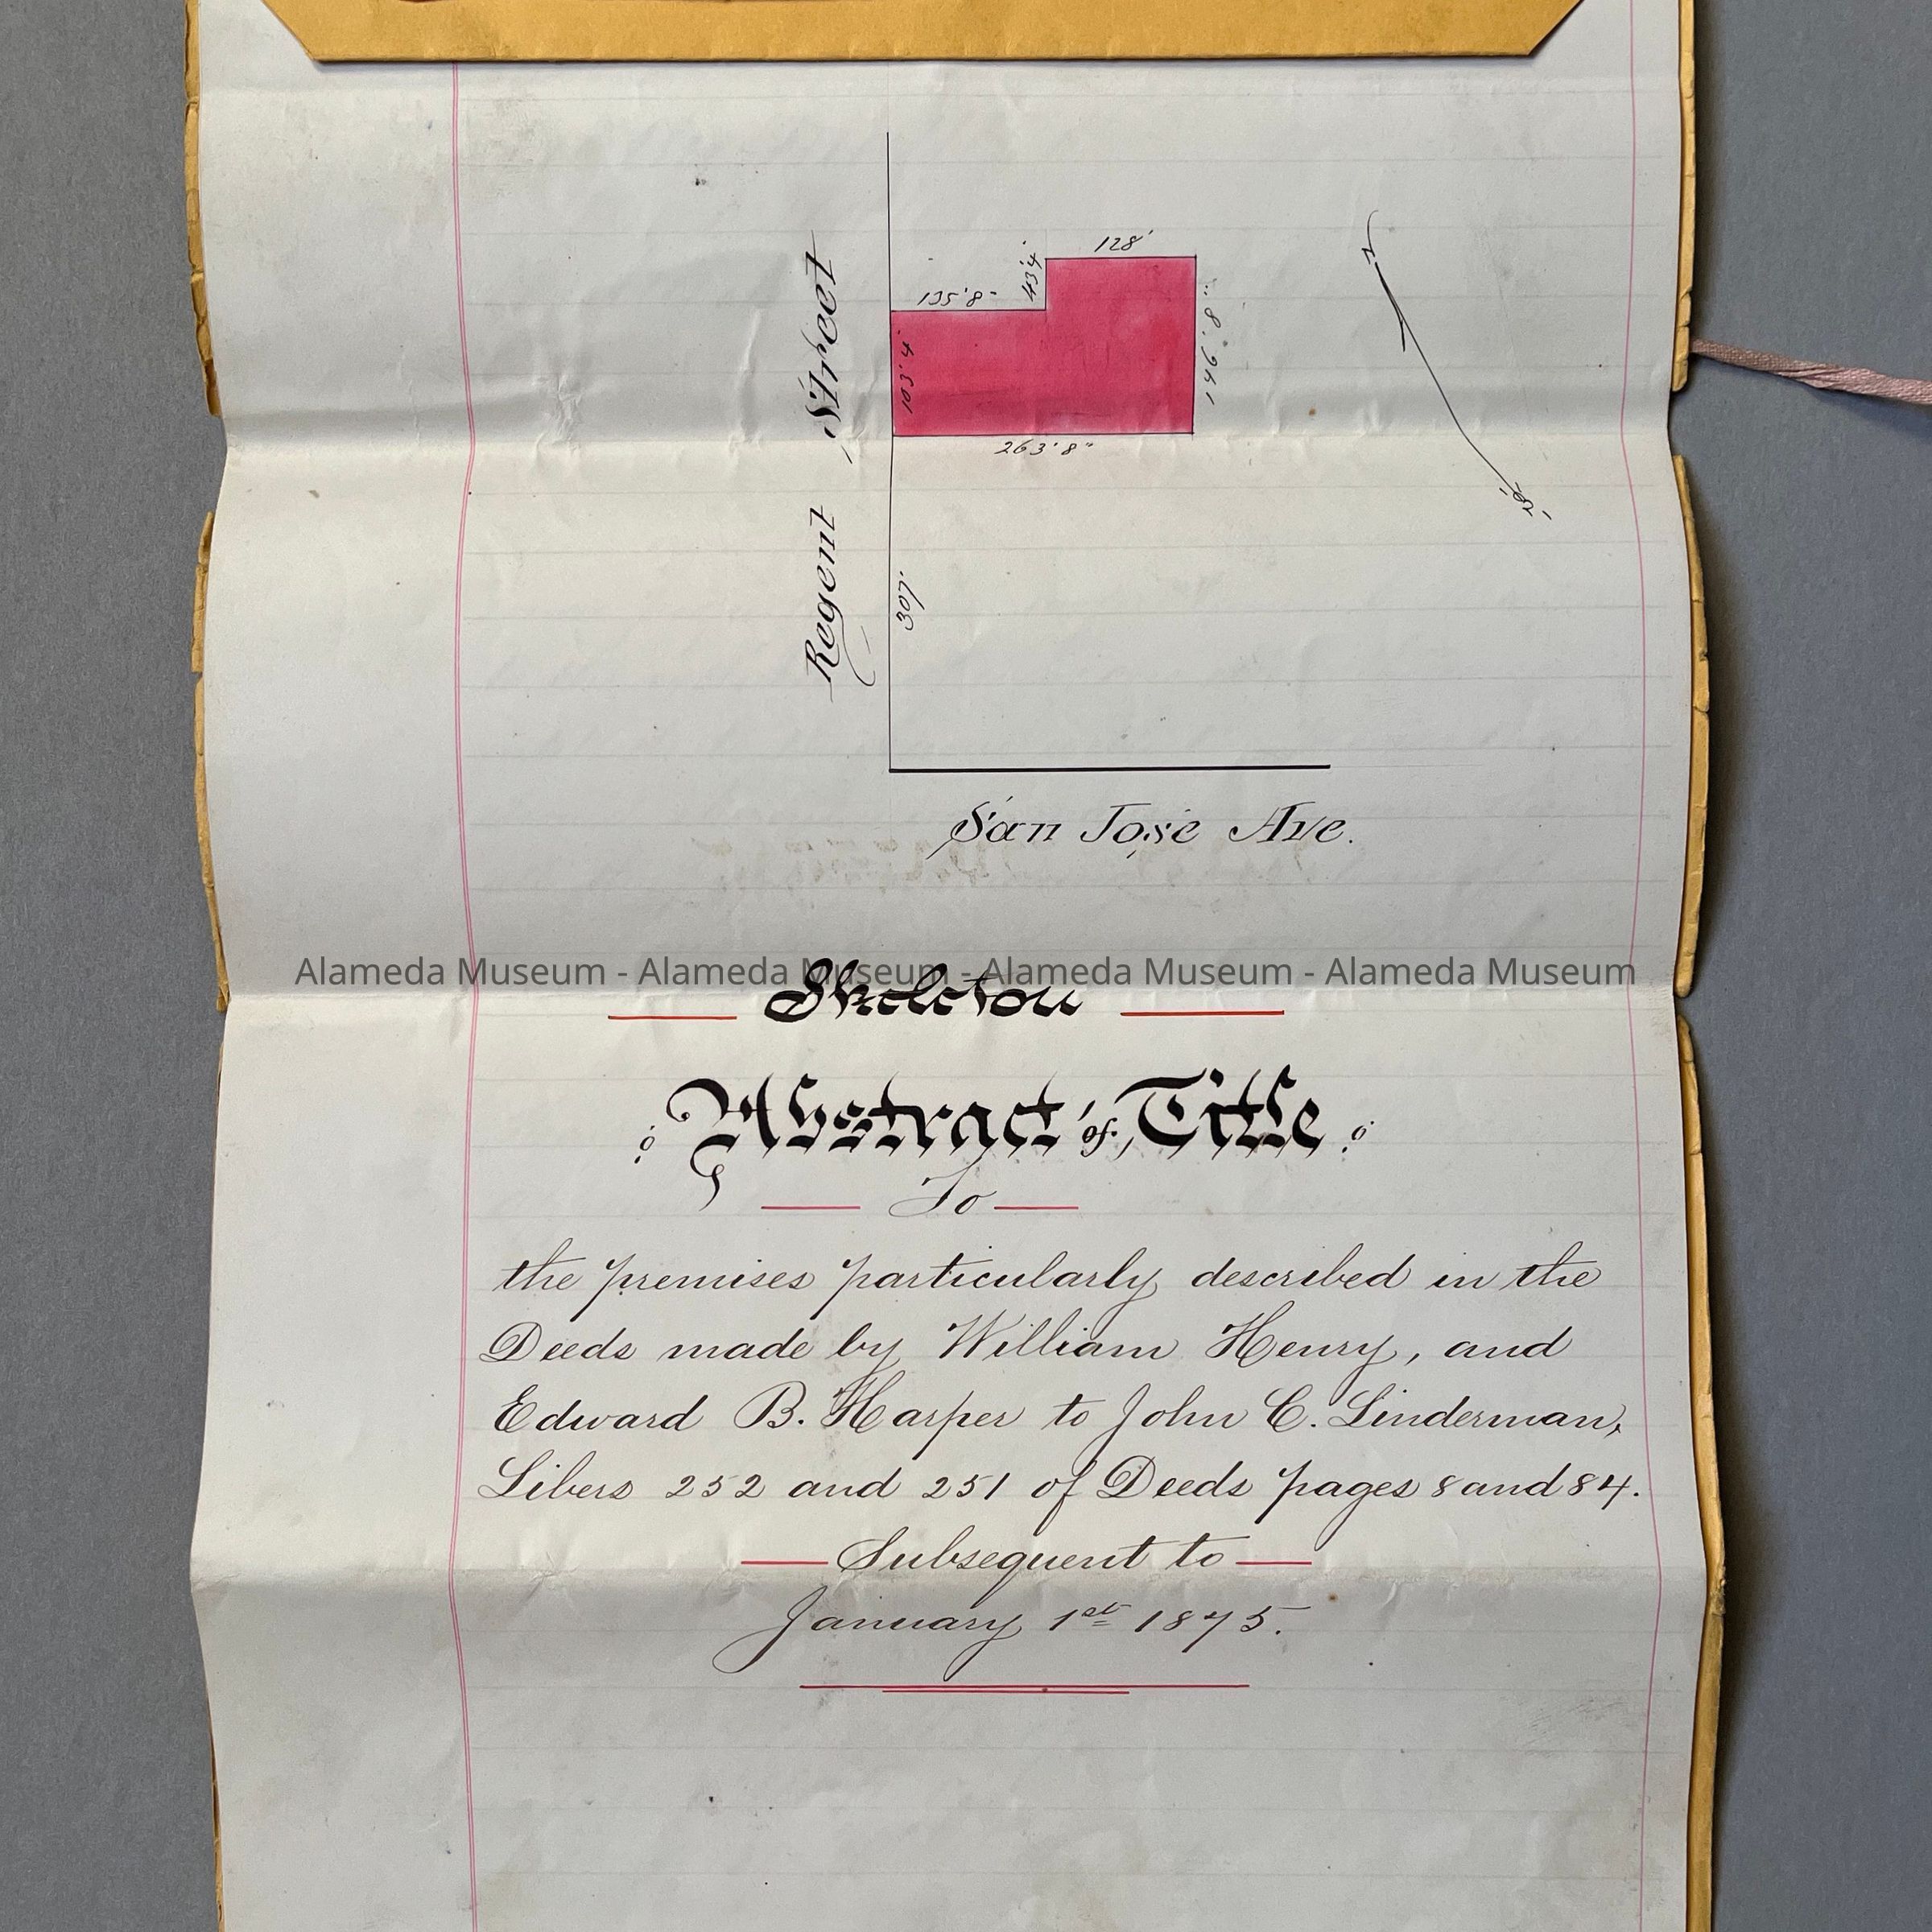 128'
43'4.
135'.8"
103'.4.
146'.8"
263'8"
N
S.
Regent Street
307.'
San José Ave.
Alameda Museum - Alameda Museum - Alameda Museum - Alameda Museum
Skeleton
Abstract of Title
To
the premises particularly described in the
Deeds made by William Henry, and
Edward B. Harper to John C. Linderman,
Libers 252 and 251 of Deeds pages 8 and 84.
Subsequent to
January 1st 1875.